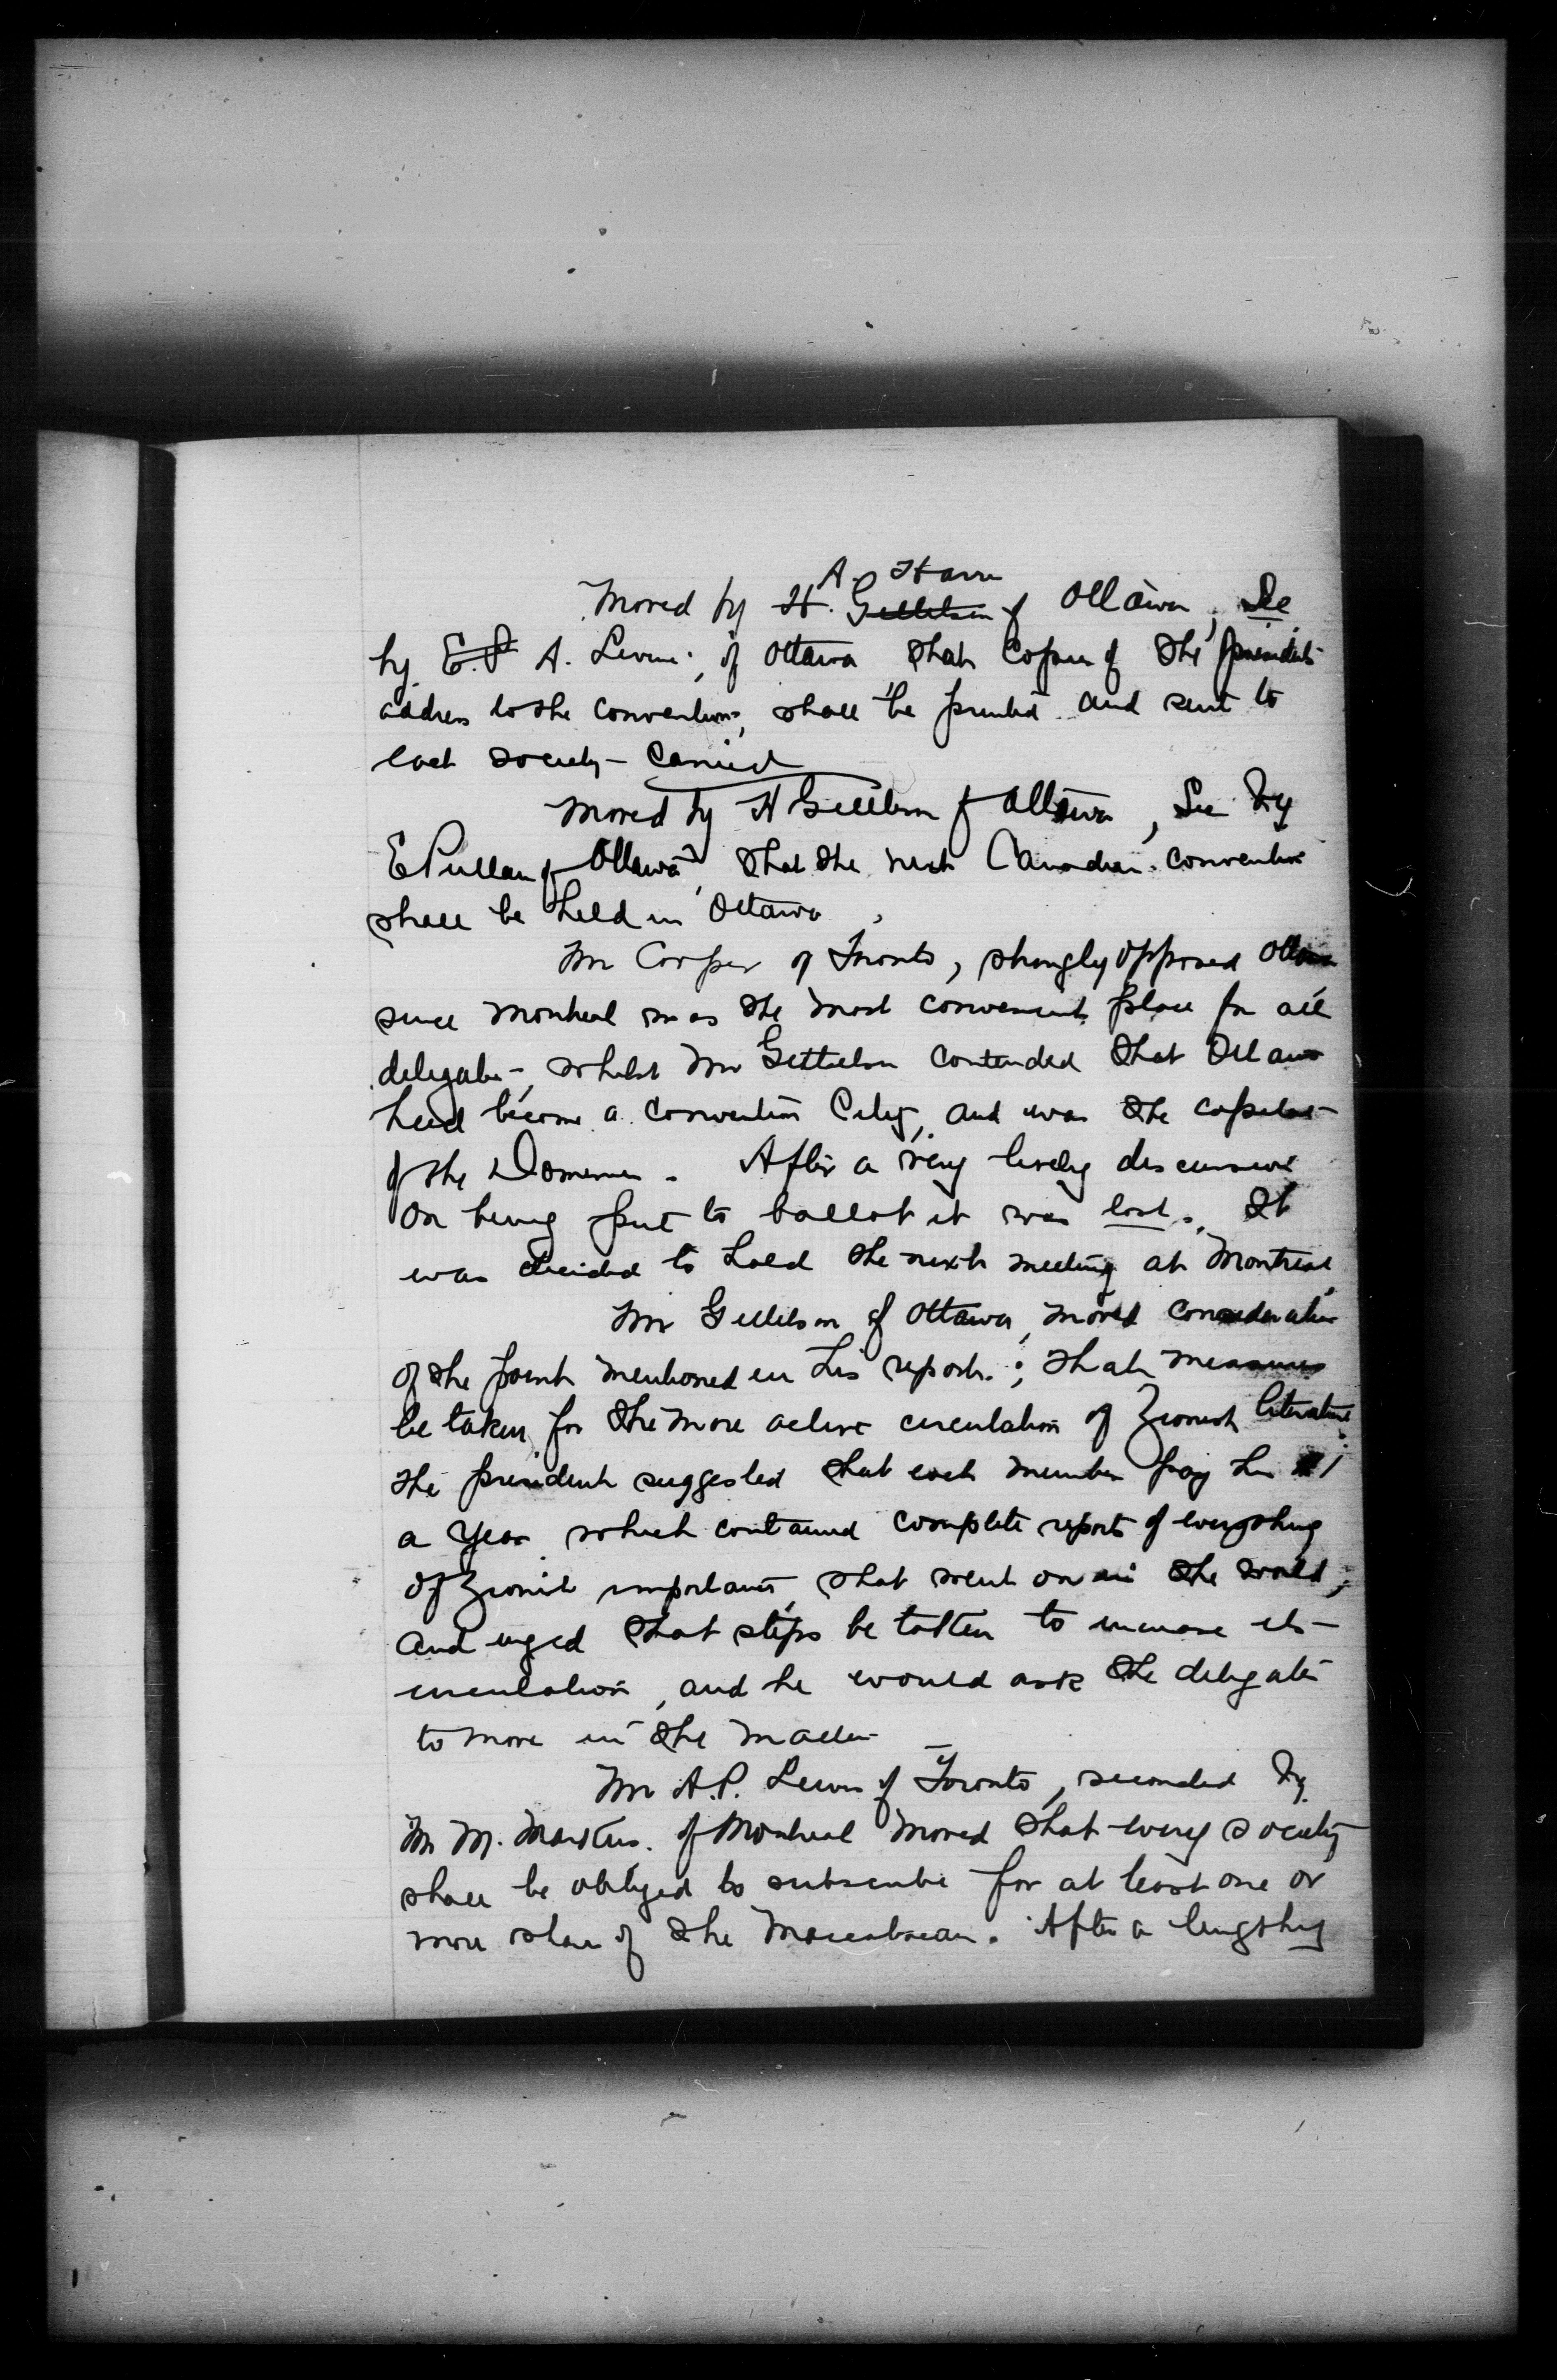 A. Harris
Moved by H. Gittelson of Ottawa, Sec
by E.P. A. Levine, of Ottawa that copies of the presidents
address to the convention, shall be printed and sent to
each society – Carried
Moved by H Gittelson of Ottawa, Sec by
E Pullan of Ottawa, that the next Canadian convention
shall be held in Ottawa.
Mr Cooper of Toronto, strongly opposed Ottawa
since Montreal was the most convenient place for all
delegates, whilst Mr Gittelson contended that Ottawa
had become a convention City, and was the capital
of the Dominion. After a very lively discussion
on being put to ballot it was lost. It
was decided to hold the next meeting at Montreal
Mr Gittelson of Ottawa, moved consideration
of the point mentioned in his report; that measures
be taken for the more active circulation of Zionist literature.
the president suggested that each member pay
a year which contained complete reports of everything
of Zionist importance that went on in the world,
and urged that steps be taken to increase its
circulation, and he would ask the delegates
to move in the matter
Mr A.P. Lewis of Toronto, seconded by
Mr M. Markus. of Montreal moved that every society
shall be obliged to subscribe for at least one or
more of the Maccabaean. After a lengthy